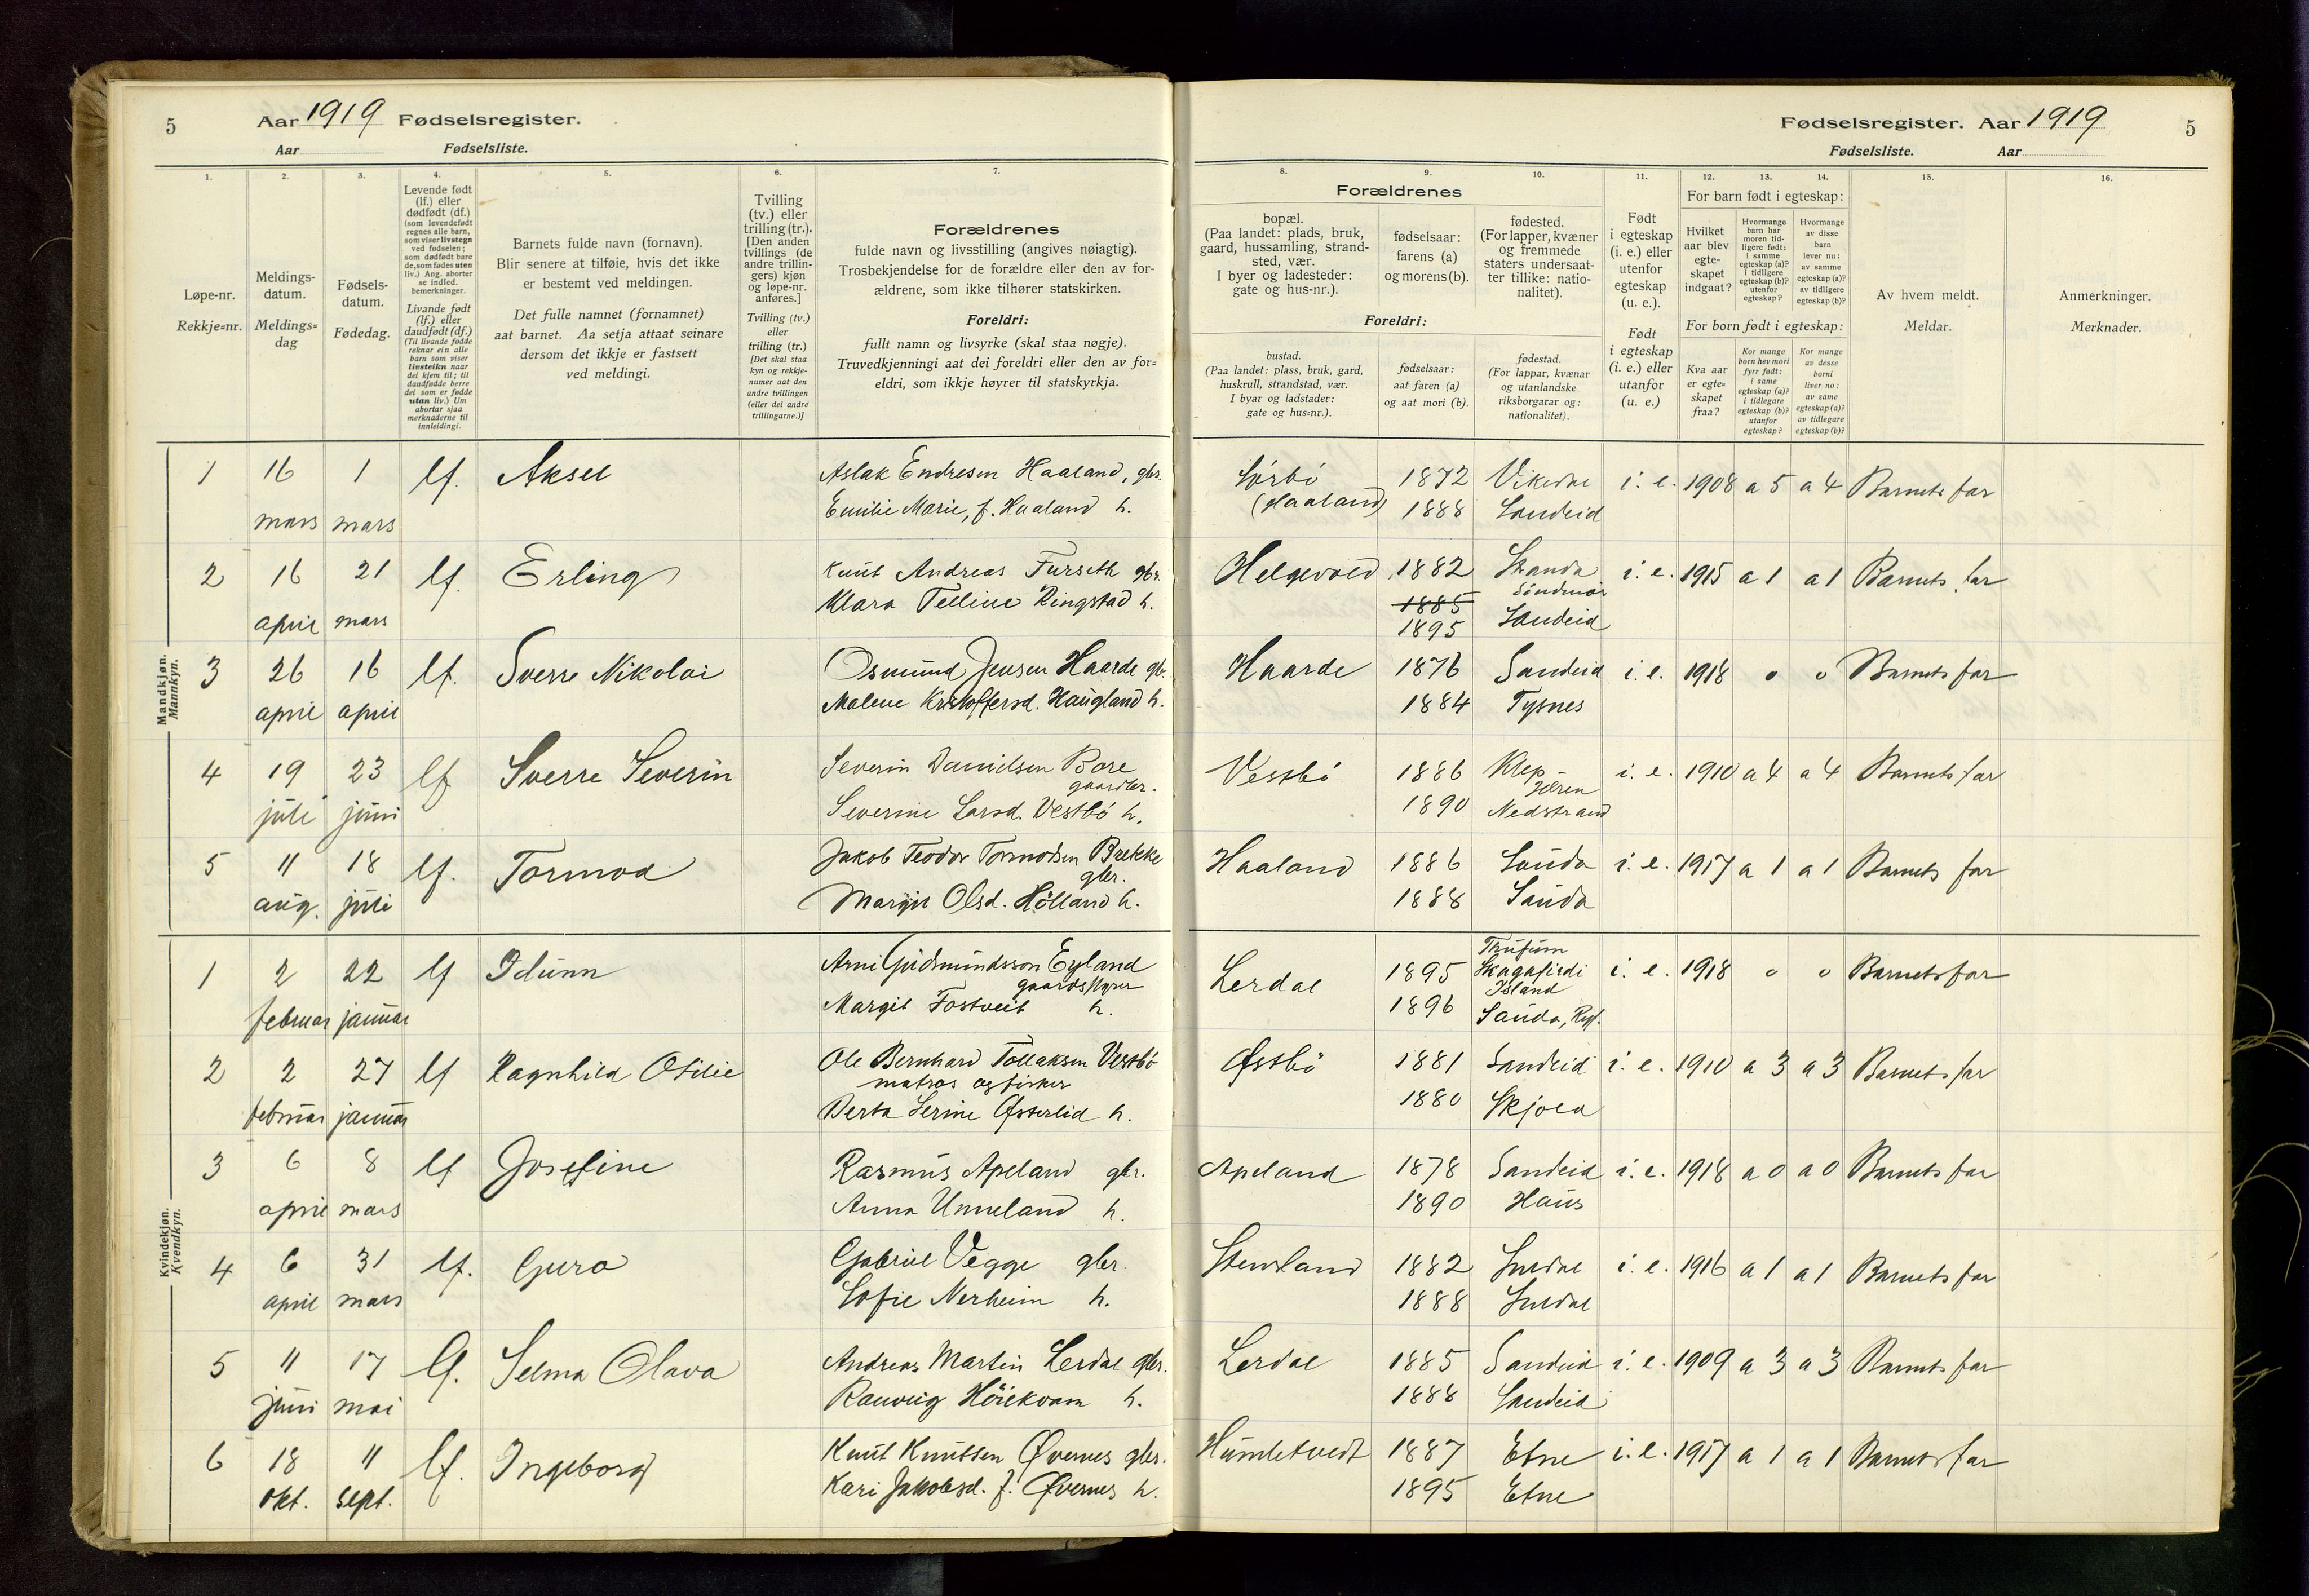 5 Aar 1919 Fødselsregister.
Aar Fødselsliste.
Fødselsregister. Aar 1919 5
Fødselsliste. Aar
1. 2. 3. 4. 5. 6. 7.
Løpe-nr.
Rekkje=nr.
Meldings-
datum.
Meldings=
dag
Fødsels-
datum.
Fødedag.
Levende født
(lf.) eller
dødfødt (df.)
(som levendefødt
regnes alle barn,
som viser livstegn
ved fødselen;
som dødfødt bare
de, som fødes uten
liv.) Ang. aborter
se indled.
bemerkninger.
Livande født
(lf.) eller
daudfødt (df.)
(Til livande fødde
reknar ein alle
barn som viser
livsteikn naar
dei kjem til; til
daudfødde berre
dei som er fødde
utan liv.) Um
abortar sjaa
merknaderne til
innleidingi.
Barnets fulde navn (fornavn).
Blir senere at tilføie, hvis det ikke
er bestemt ved meldingen.
Det fulle namnet (fornamnet)
aat barnet. Aa setja attaat seinare
dersom det ikkje er fastsett
ved meldingi.
Tvilling
(tv.) eller
trilling (tr.).
[Den anden
tvillings (de
andre trillin-
gers) kjøn
og løpe-nr.
anføres.]
Tvilling (tv.)
eller
trilling (tr.)
[Det skal staa
kyn og rekkje-
numer aat den
andre tvillingen
(eller dei andre
trillingarne.)]
Forældrenes
fulde navn og livsstilling (angives nøiagtig).
Trosbekjendelse for de forældre eller den av for-
ældrene, som ikke tilhører statskirken.
Foreldri:
fullt namn og livsyrke (skal staa nøgje).
Truvedkjenningi aat dei foreldri eller den av for=
eldri, som ikkje høyrer til statskyrkja.
8. 9. 10. 11. 12. 13. 14. 15. 16.
Forældrenes
bopæl.
(Paa landet: plads, bruk,
gaard, hussamling, strand-
sted, vær.
I byer og ladesteder:
gate og hus-nr.).
fødselsaar:
farens (a)
og morens (b).
fødested.
(For lapper, kvæner
og fremmede
staters undersaat-
ter tillike: natio-
nalitet).
Foreldri:
bustad.
(Paa landet: plass, bruk, gard,
huskrull, strandstad, vær.
I byar og ladstader:
gate og hus=nr.).
fødselsaar:
aat faren (a)
og aat mori (b).
fødestad.
(For lappar, kvænar
og utanlandske
riksborgarar og:
nationalitet).
Født
i egteskap
(i. e.) eller
utenfor
egteskap
(u. e.).
Født
i egteskap
(i. e.) eller
utanfor
(u. e.)
For barn født i egteskap:
Hvilket
aar blev
egte-
skapet
indgaat?
Hvormange
barn har
moren tid-
ligere født:
i samme
egteskap (a)?
i tidligere
egteskap (b)?
utenfor
egteskap?
Hvormange
av disse
barn
lever nu:
av samme
egteskap (a)?
av tidligere
egteskap (b)?
For born født i egteskap:
Kva aar
er egte=
skapet
fraa?
Kor mange
born hev mori
fyrr født:
i same
egteskap (a)?
i tidlegare
egteskap (b)?
utanfor
egteskap?
Kor mange
av desse
borni
liver no:
av same
egteskap (a)?
av tidlegare
egteskap (b)?
Av hvem meldt.
Meldar.
Anmerkninger.
Merknader.
Mandkjøn.
Mannkyn.
1 16 1 lf. Aksel Aslak Endresen Haaland, gbr. Sørbö 1872 Vikedal i. e. 1908 a 5 a 4 Barnets far
mars mars Emilie Marie, f. Haaland h. (Haaland) 1888 Sandeid
2 16 21 lf. Erling Knut Andreas Furseth gbr. Helgevold 1882 Stranda i. e. 1915 a 1 a 1 Barnets far
Söndmör
april mars Klara Telline Ringstad h. 1885
1895 Sandeid
3 26 16 lf. Sverre Nikolai Osmund Jensen Haarde gbr. Haarde 1876 Sandeid i. e. 1918 0 0 Barnets far
april april Malene Kristoffersd. Haugland h. 1884 Tysnes
4 19 23 lf Sverre Severin Severin Danielsen Bore Vestbö 1886 Klep i. e. 1910 a 4 a 4 Barnets far
gaardbr. Jæren
juli juni Severine Larsd. Vestbö h. 1890 Nedstrand
5 11 18 lf. Tormod Jakob Teodor Tormodsen Brekke Haaland 1886 Sauda i. e. 1917 a 1 a 1 Barnets far
gbr.
aug. juli Olsd. Hölland h. 1888 Sauda
Kvindekjøn.
Kvendkyn.
1 2 22 lf Idunn Arni Gudmundsson Eyland Lerdal 1895 Skagafirdi i. e. 1918 0 0 Barnets far
Island
februar januar Margit Fostveit h. 1896 Sauda, Ryf.
2 2 27 lf Ragnhild Otilie Ole Bernhard Tollaksen Vestbö Østbö 1881 Sandeid i. e. 1910 a 3 a 3 Barnets far
matros og fisker
februar januar Berta Serine Østerlid h. 1880 Skjold
3 6 8 lf Josefine Rasmus Apeland gbr. Apeland 1878 Sandeid i. e. 1918 a 0 a 0 Barnets far
april mars Anna Unneland h. 1890 Haus
4 6 31 lf. Guro Gabriel Vegge gbr. 1882 Suldal i. e. 1916 a 1 a 1 Barnets far
april mars Sofie Nerheim h. 1888 Suldal
5 11 17 lf. Selma Olava Andreas Martin Lerdal gbr. Lerdal 1885 Sandeid i. e. 1909 a 3 a 3 Barnets far
juni mai Ranveig Höiekvam h. 1888 Sandeid
6 18 11 lf. Ingeborg Knut Knutsen Øvernes gbr. Humletvedt 1887 Etne i. e. 1917 a 1 a 1 Barnets far
okt. sept. Kari Jakobsd. f. Øvernes h. 1895 Etne